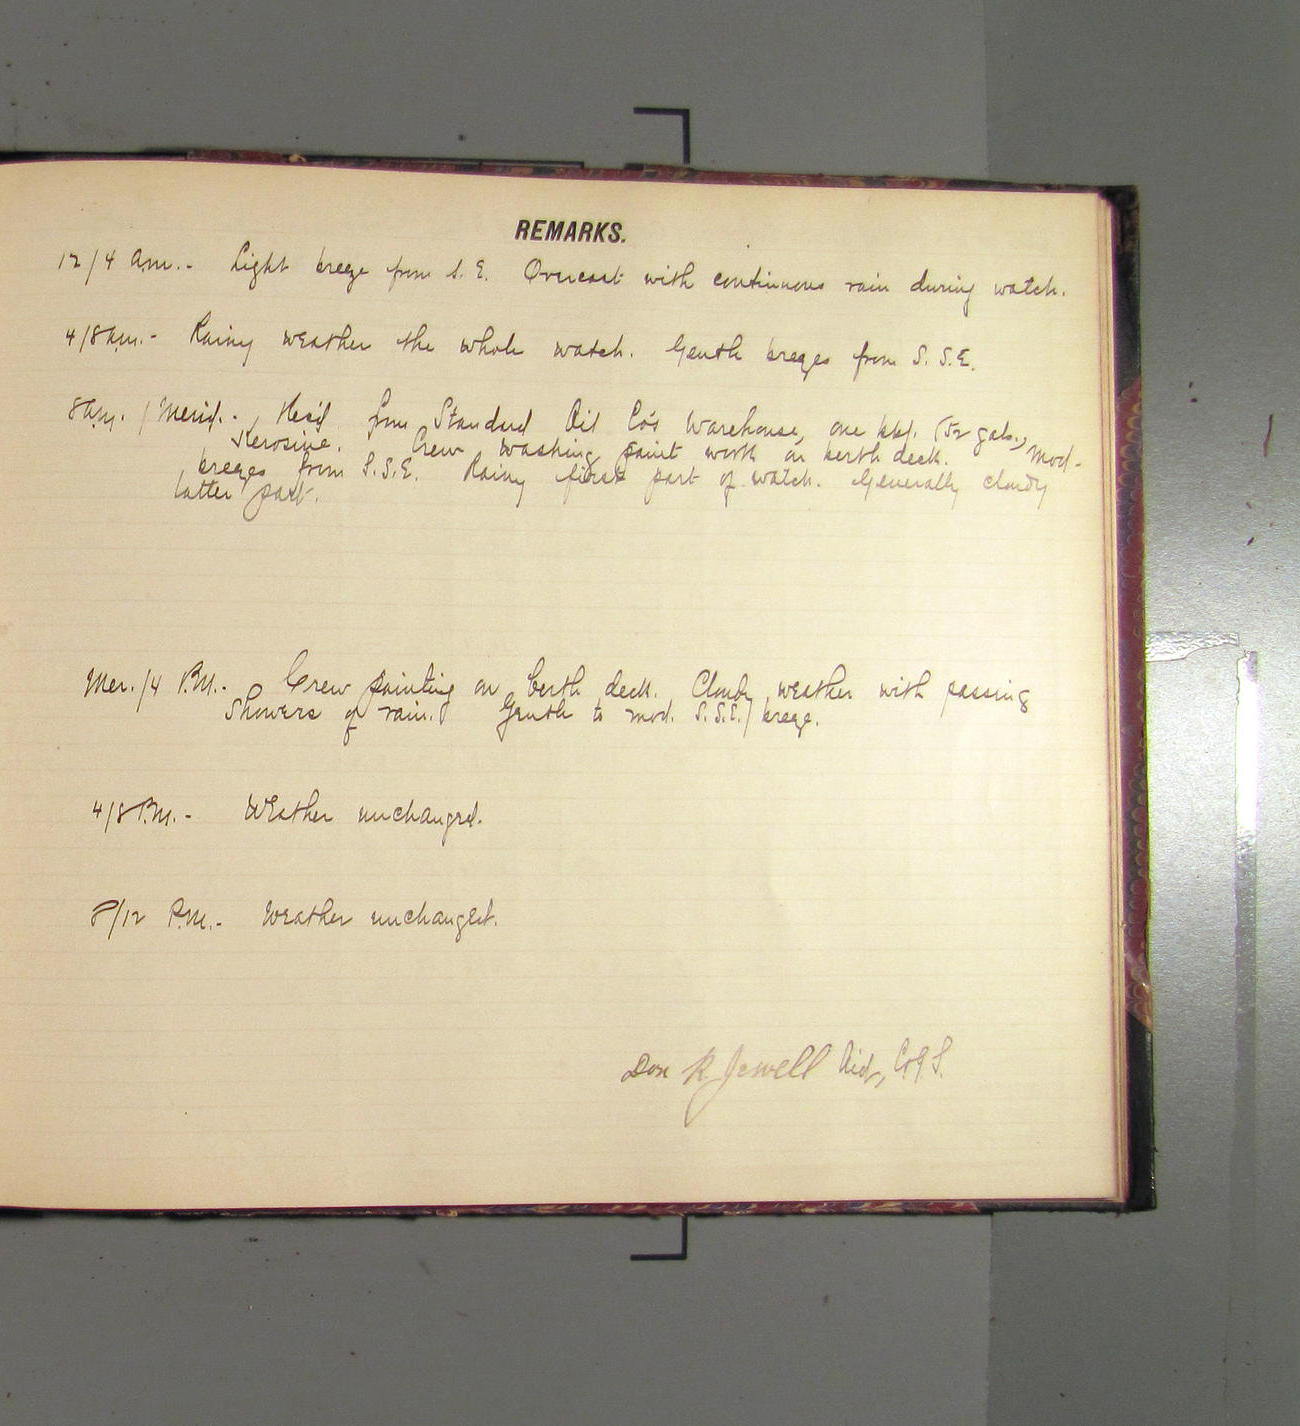 REMARKS.
12/4 a.m.- Light breeze from S. E. Overcast with continuous rain during watch.
4/8 a.m.- Rainy weather the whole watch. Gentle breezes from S. S. E.
8 a.m. / Merid.- Rec'd from Standard Oil Co's Warehouse, one bbl. (52 gals.,
Kerosine. Crew washing paint work on berth deck. Mod-
breezes from S.S.E. Rainy first part of watch. Generally cloudy
latter part.
Mer./4 P.M.- Crew painting on berth deck. Cloudy weather with passing
Showers of rain. Gentle to mod. S.S.E./ breeze.
4/8 P.M.- Weather unchanged.
8/12 P.M.- Weather unchanged.
Don R Jewell Aid, C.&G.S.